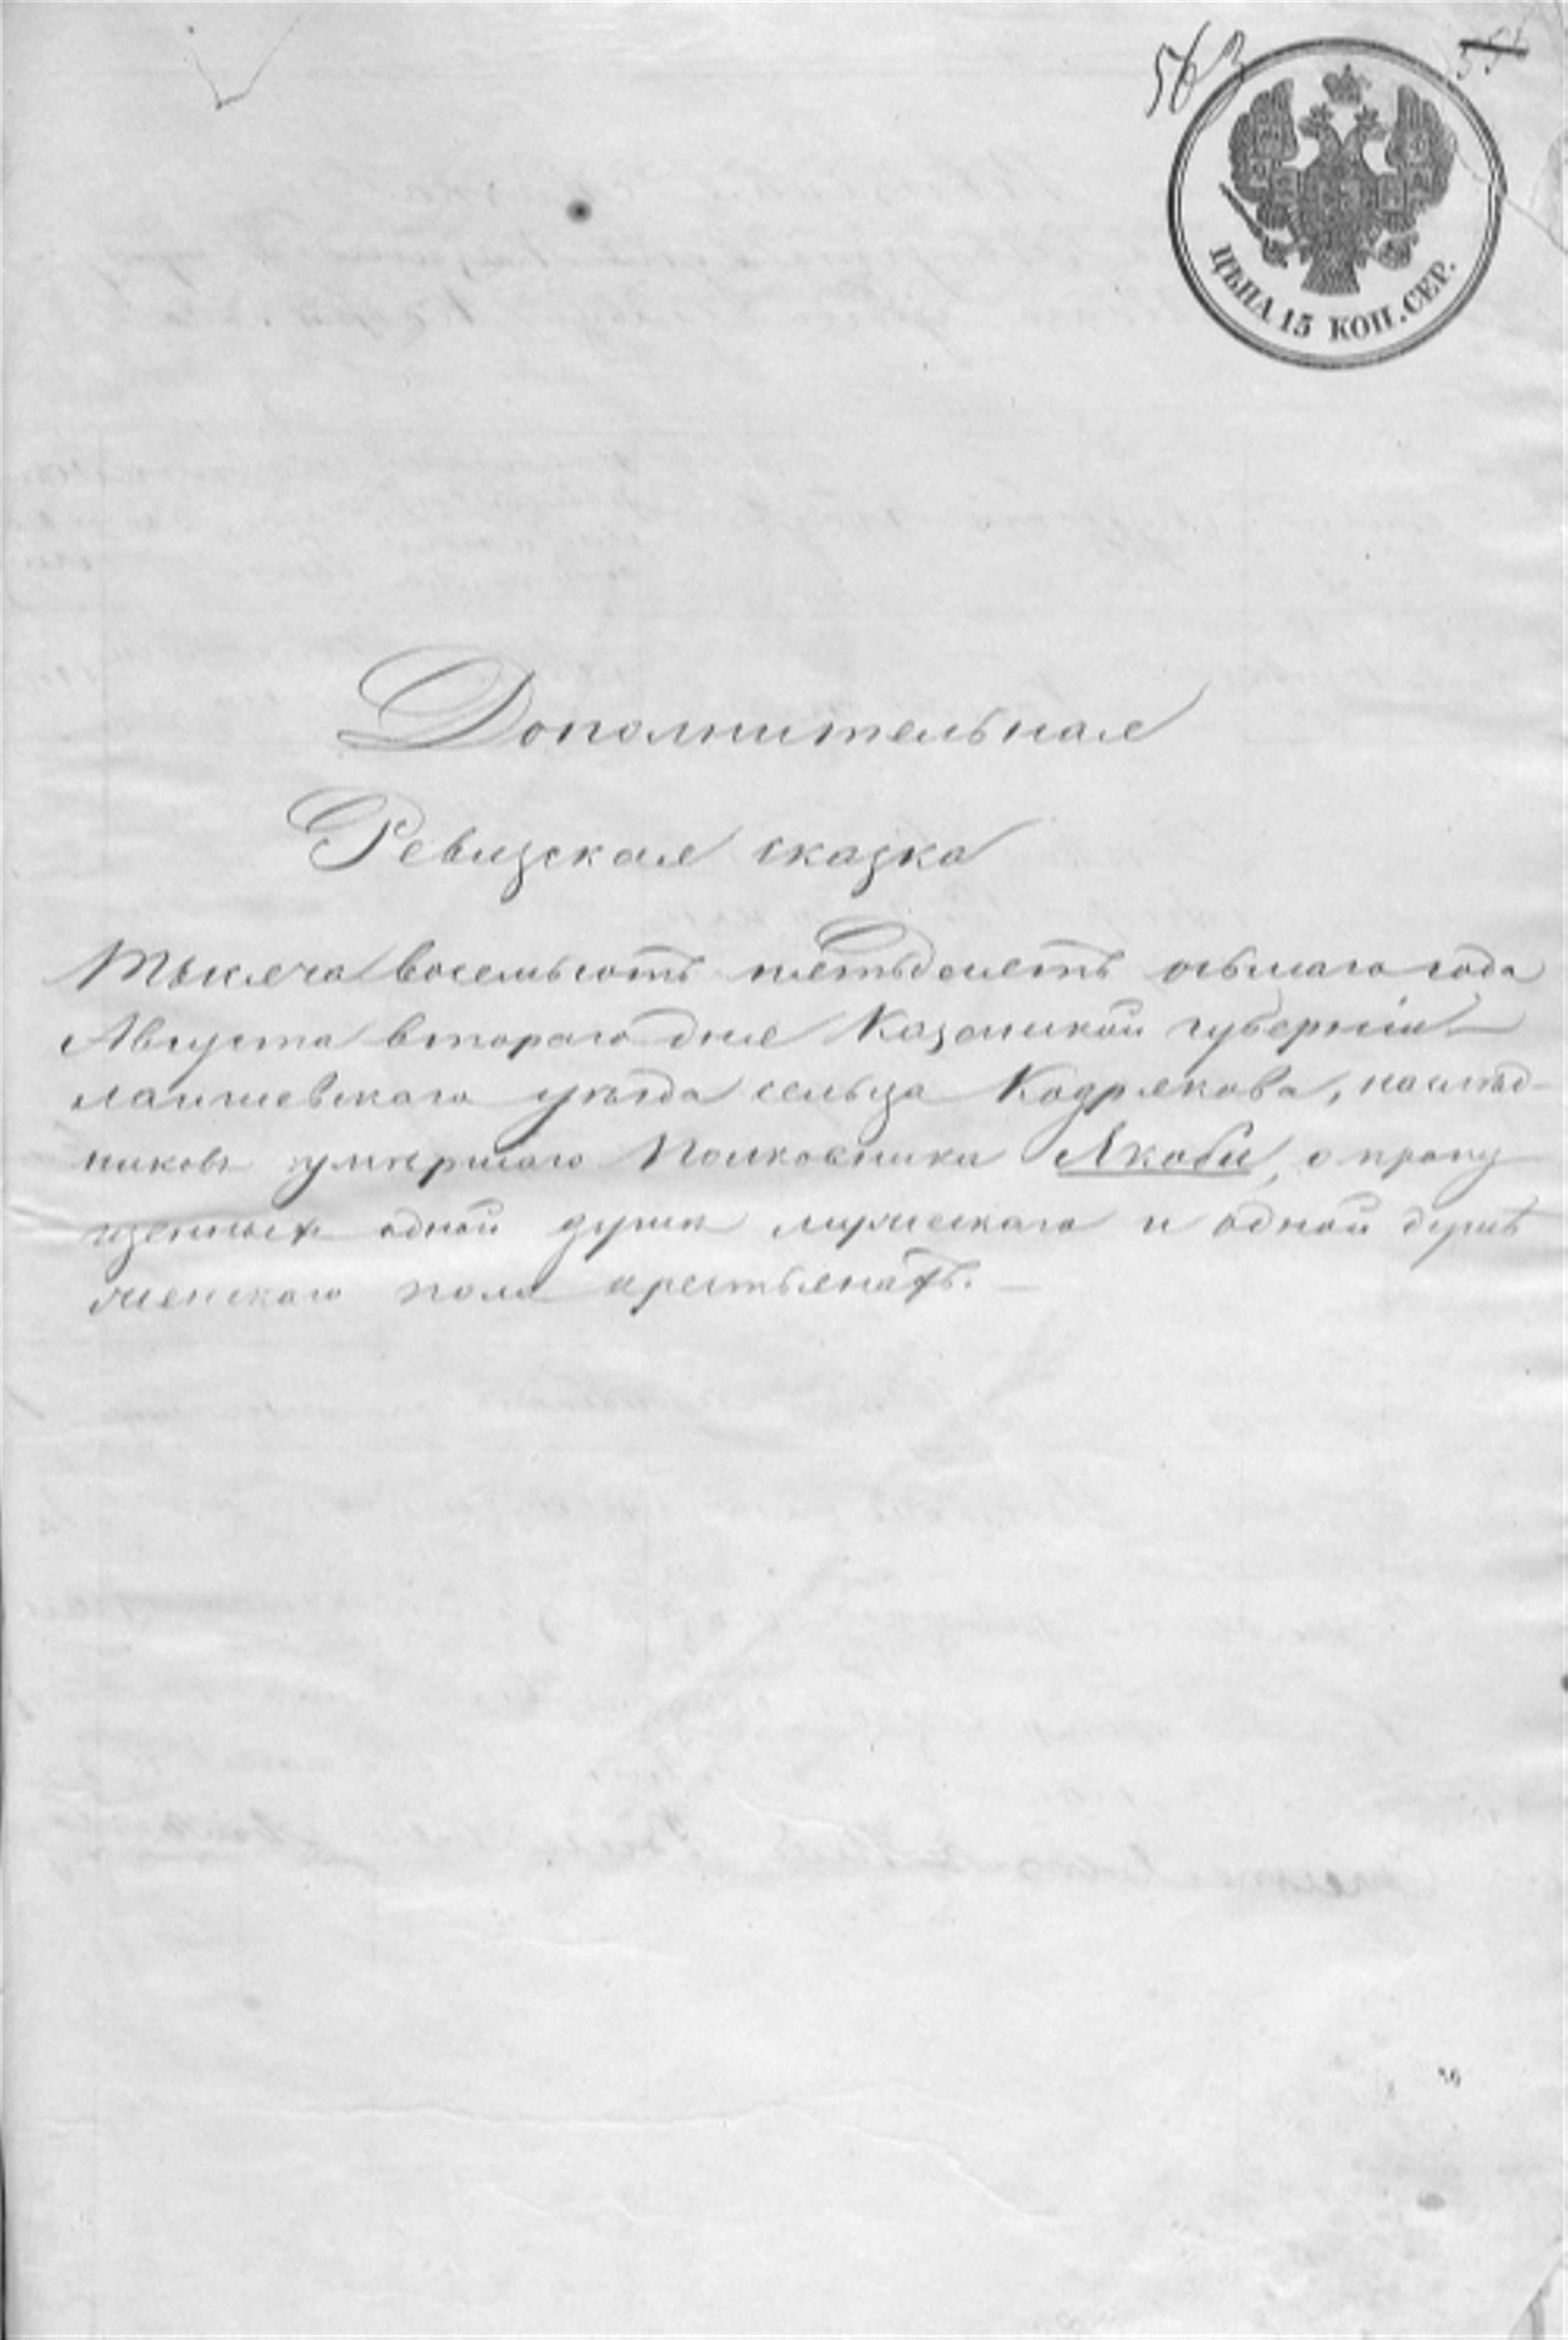 563
ЦѢНА 15 КОП. СЕР.
Дополнительная
Ревизская сказка
Тысяча восемьсотъ пятьдесятъ осьмаго года
Августа втораго дня Казанской губерніи
лаишевскаго уѣзда сельца Кодрякова, наслѣд-
никовъ умершаго Полковника Якоби, о пропу
щенныхъ одной душѣ мужескаго и одной душѣ
женскаго пола крестьянахъ.